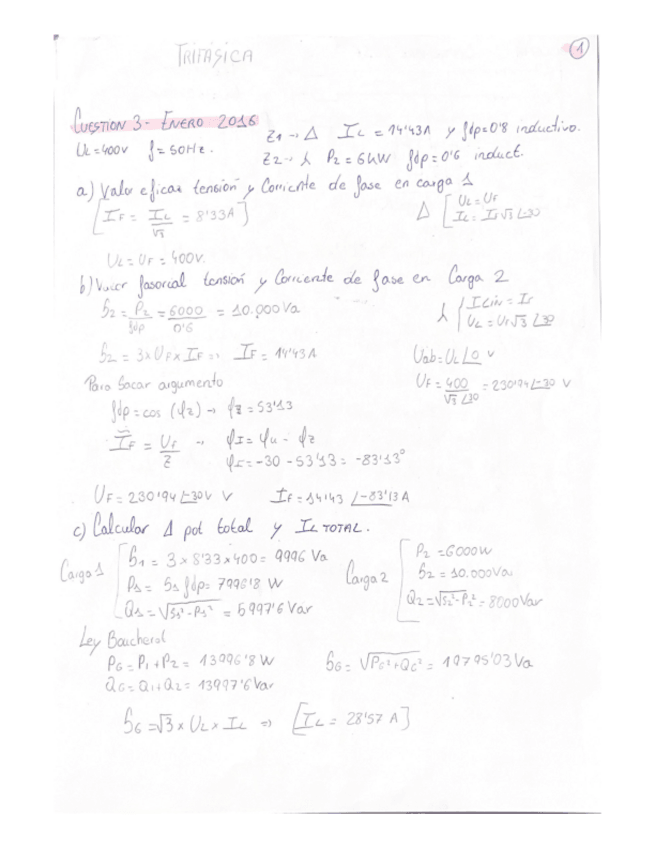 TRIFÁSICA
1
CUESTION 3 - ENERO 2016
UL=400V f=50Hz.
Z1 → Δ IL = 14'43A y fdp=0'8 inductivo.
Z2 → λ P2 = 6kW fdp=0'6 induct.
a) Valor eficaz tensión y Corriente de fase en carga 1
[IF = IL/√3 = 8'33A]
Δ [UL=UF
IL = IF√3 ∠30
UL=UF=400V.
b) Valor fasorial tensión y Corriente de fase en Carga 2
S2 = P2/fdp = 6000/0'6 = 10.000Va
λ { ILin = IF
UL = UF√3 ∠30
S2 = 3×UF×IF => IF = 14'43A
Uab=UL∠0 V
Para Sacar argumento
UF = 400/√3∠30 = 230'94∠-30 V
fdp=cos (φz) → φz=53'13
IF = UF/Z → φI=φu - φz
φI=-30-53'13= -83'13°
UF=230'94∠-30V V IF=14'43 ∠-83'13A
c) Calcular Δ pot total y IL TOTAL.
Carga 1
S1 = 3×8'33×400= 9996 Va
P1= S1 fdp= 7996'8 W
Q1=√S1²-P1² = 5997'6 Var
Carga 2
P2 =6000W
S2=10.000Va
Q2=√S2²-P2² = 8000Var
Ley Boucherot
PG=P1+P2= 13996'8W
QG=Q1+Q2= 13997'6Var
SG=√PG²+QG² = 19795'03Va
SG=√3×UL×IL => [IL= 28'57 A]